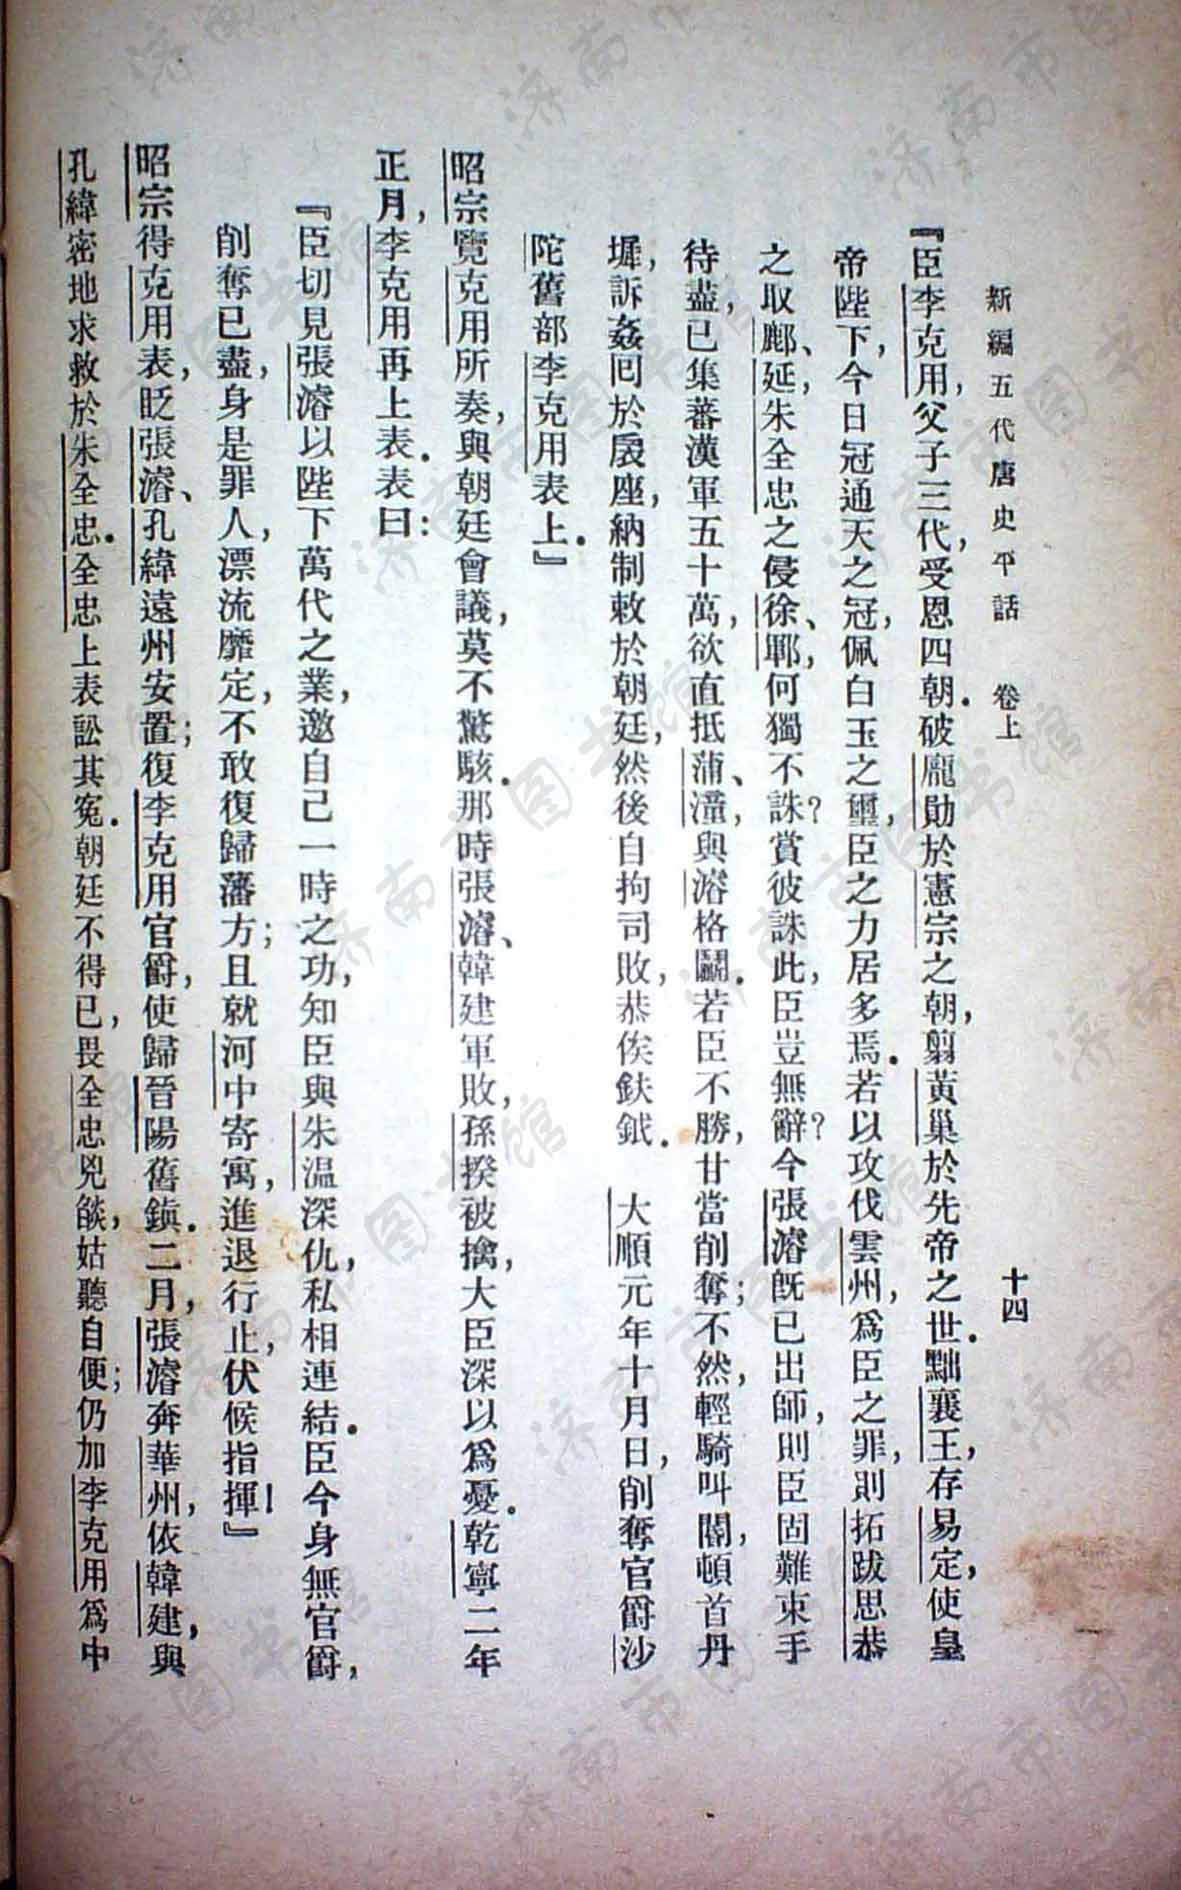 新編五代唐史平話　卷上　十四
『臣李克用，父子三代，受恩四朝．破龐勛於憲宗之朝，翦黃巢於先帝之世．黜襄王，存易定，使皇
帝陛下，今日冠通天之冠，佩白玉之璽，臣之力居多焉．若以攻伐雲州，爲臣之罪，則拓跋思恭
之取鄜、延，朱全忠之侵徐、鄆，何獨不誅？賞彼誅此，臣豈無辭？今張濬旣已出師，則臣固難束手
待盡，已集蕃漢軍五十萬，欲直抵蒲、潼，與濬格鬭．若臣不勝，甘當削奪；不然，輕騎叫閽，頓首丹
墀，訴姦囘於扆座，納制敕於朝廷，然後自拘司敗，恭俟鈇鉞．　大順元年十月日，削奪官爵沙
陀舊部李克用表上．』
昭宗覽克用所奏，與朝廷會議，莫不驚駭．那時張濬、韓建軍敗，孫揆被擒，大臣深以爲憂．乾寧二年
正月，李克用再上表．表曰：
『臣切見張濬以陛下萬代之業，邀自己一時之功，知臣與朱溫深仇，私相連結．臣今身無官爵，
削奪已盡，身是罪人，漂流靡定，不敢復歸藩方；且就河中寄寓，進退行止，伏候指揮！』
昭宗得克用表，貶張濬、孔緯遠州安置；復李克用官爵，使歸晉陽舊鎭．二月，張濬奔華州，依韓建，與
孔緯密地求救於朱全忠．全忠上表訟其寃．朝廷不得已，畏全忠兇燄，姑聽自便；仍加李克用爲中
济南市图书馆